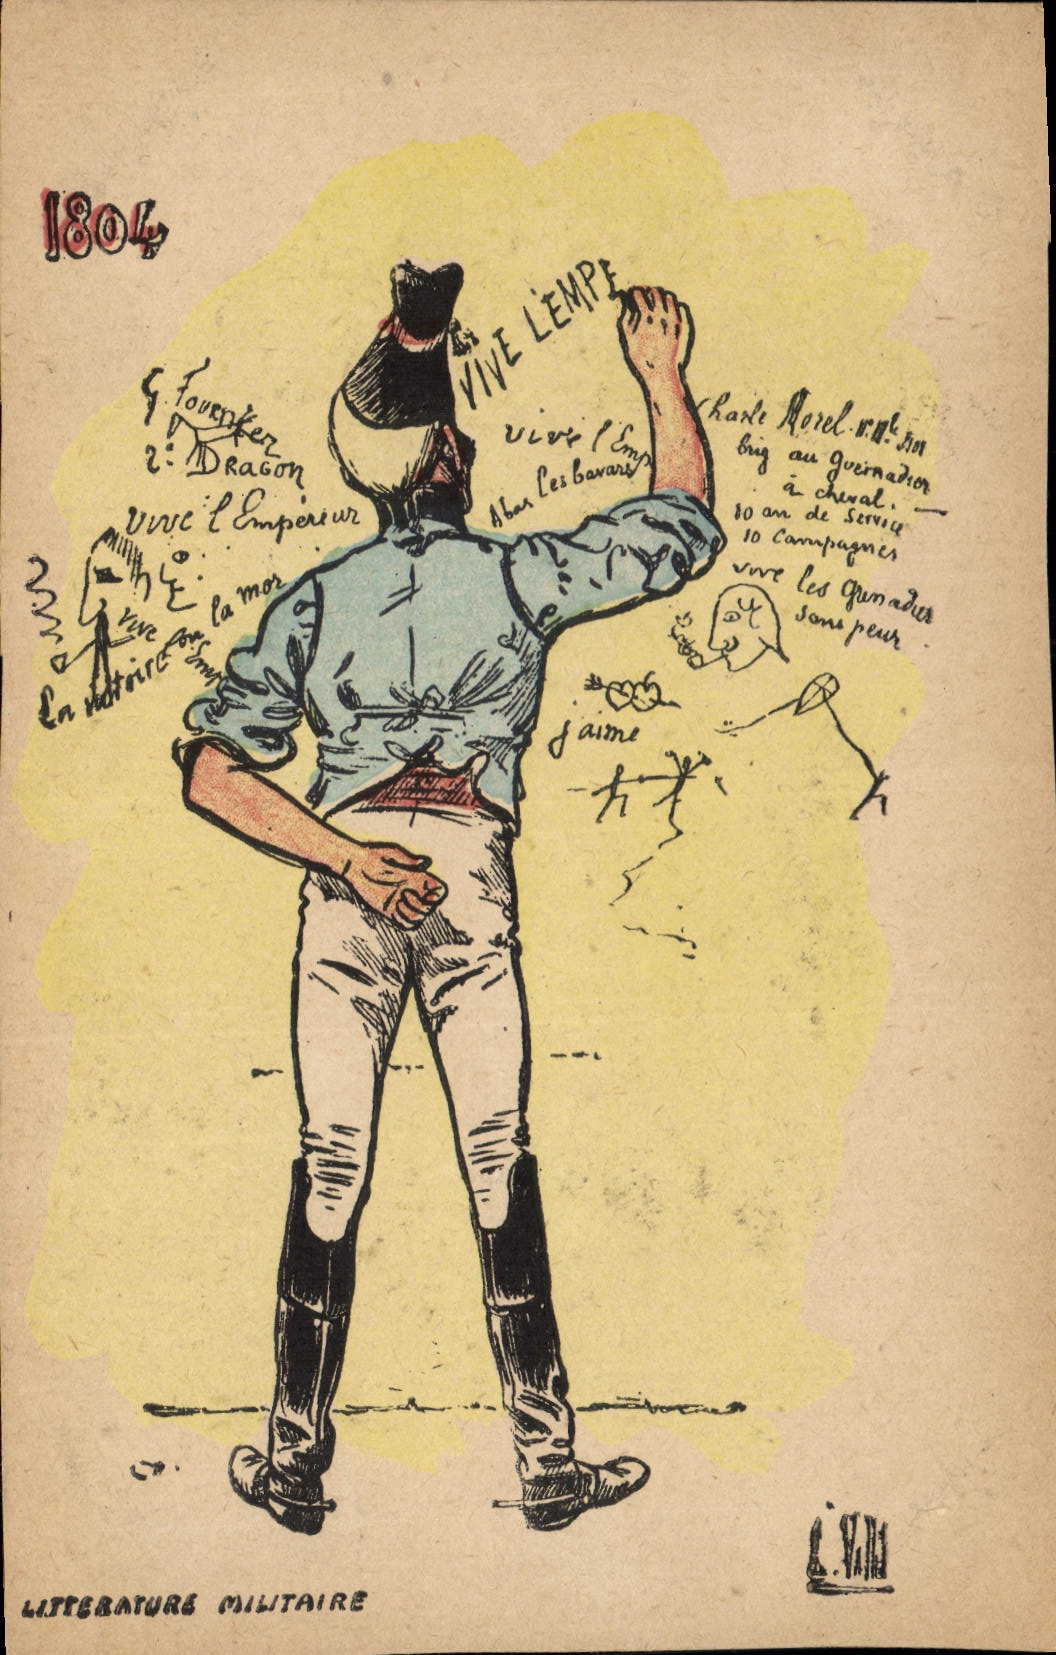 1804
VIVE L'EMPE
G. Fournier
2e DRAGON
vive l'Empereur
vive l'Emp
Abas les bavars
Charle Morel
brig au guernadier
à cheval.
10 an de service
10 campagnes
vive les grenadier
sans peur.
la victoire ou la mor
vive
Emp
j'aime
LITTERATURE MILITAIRE